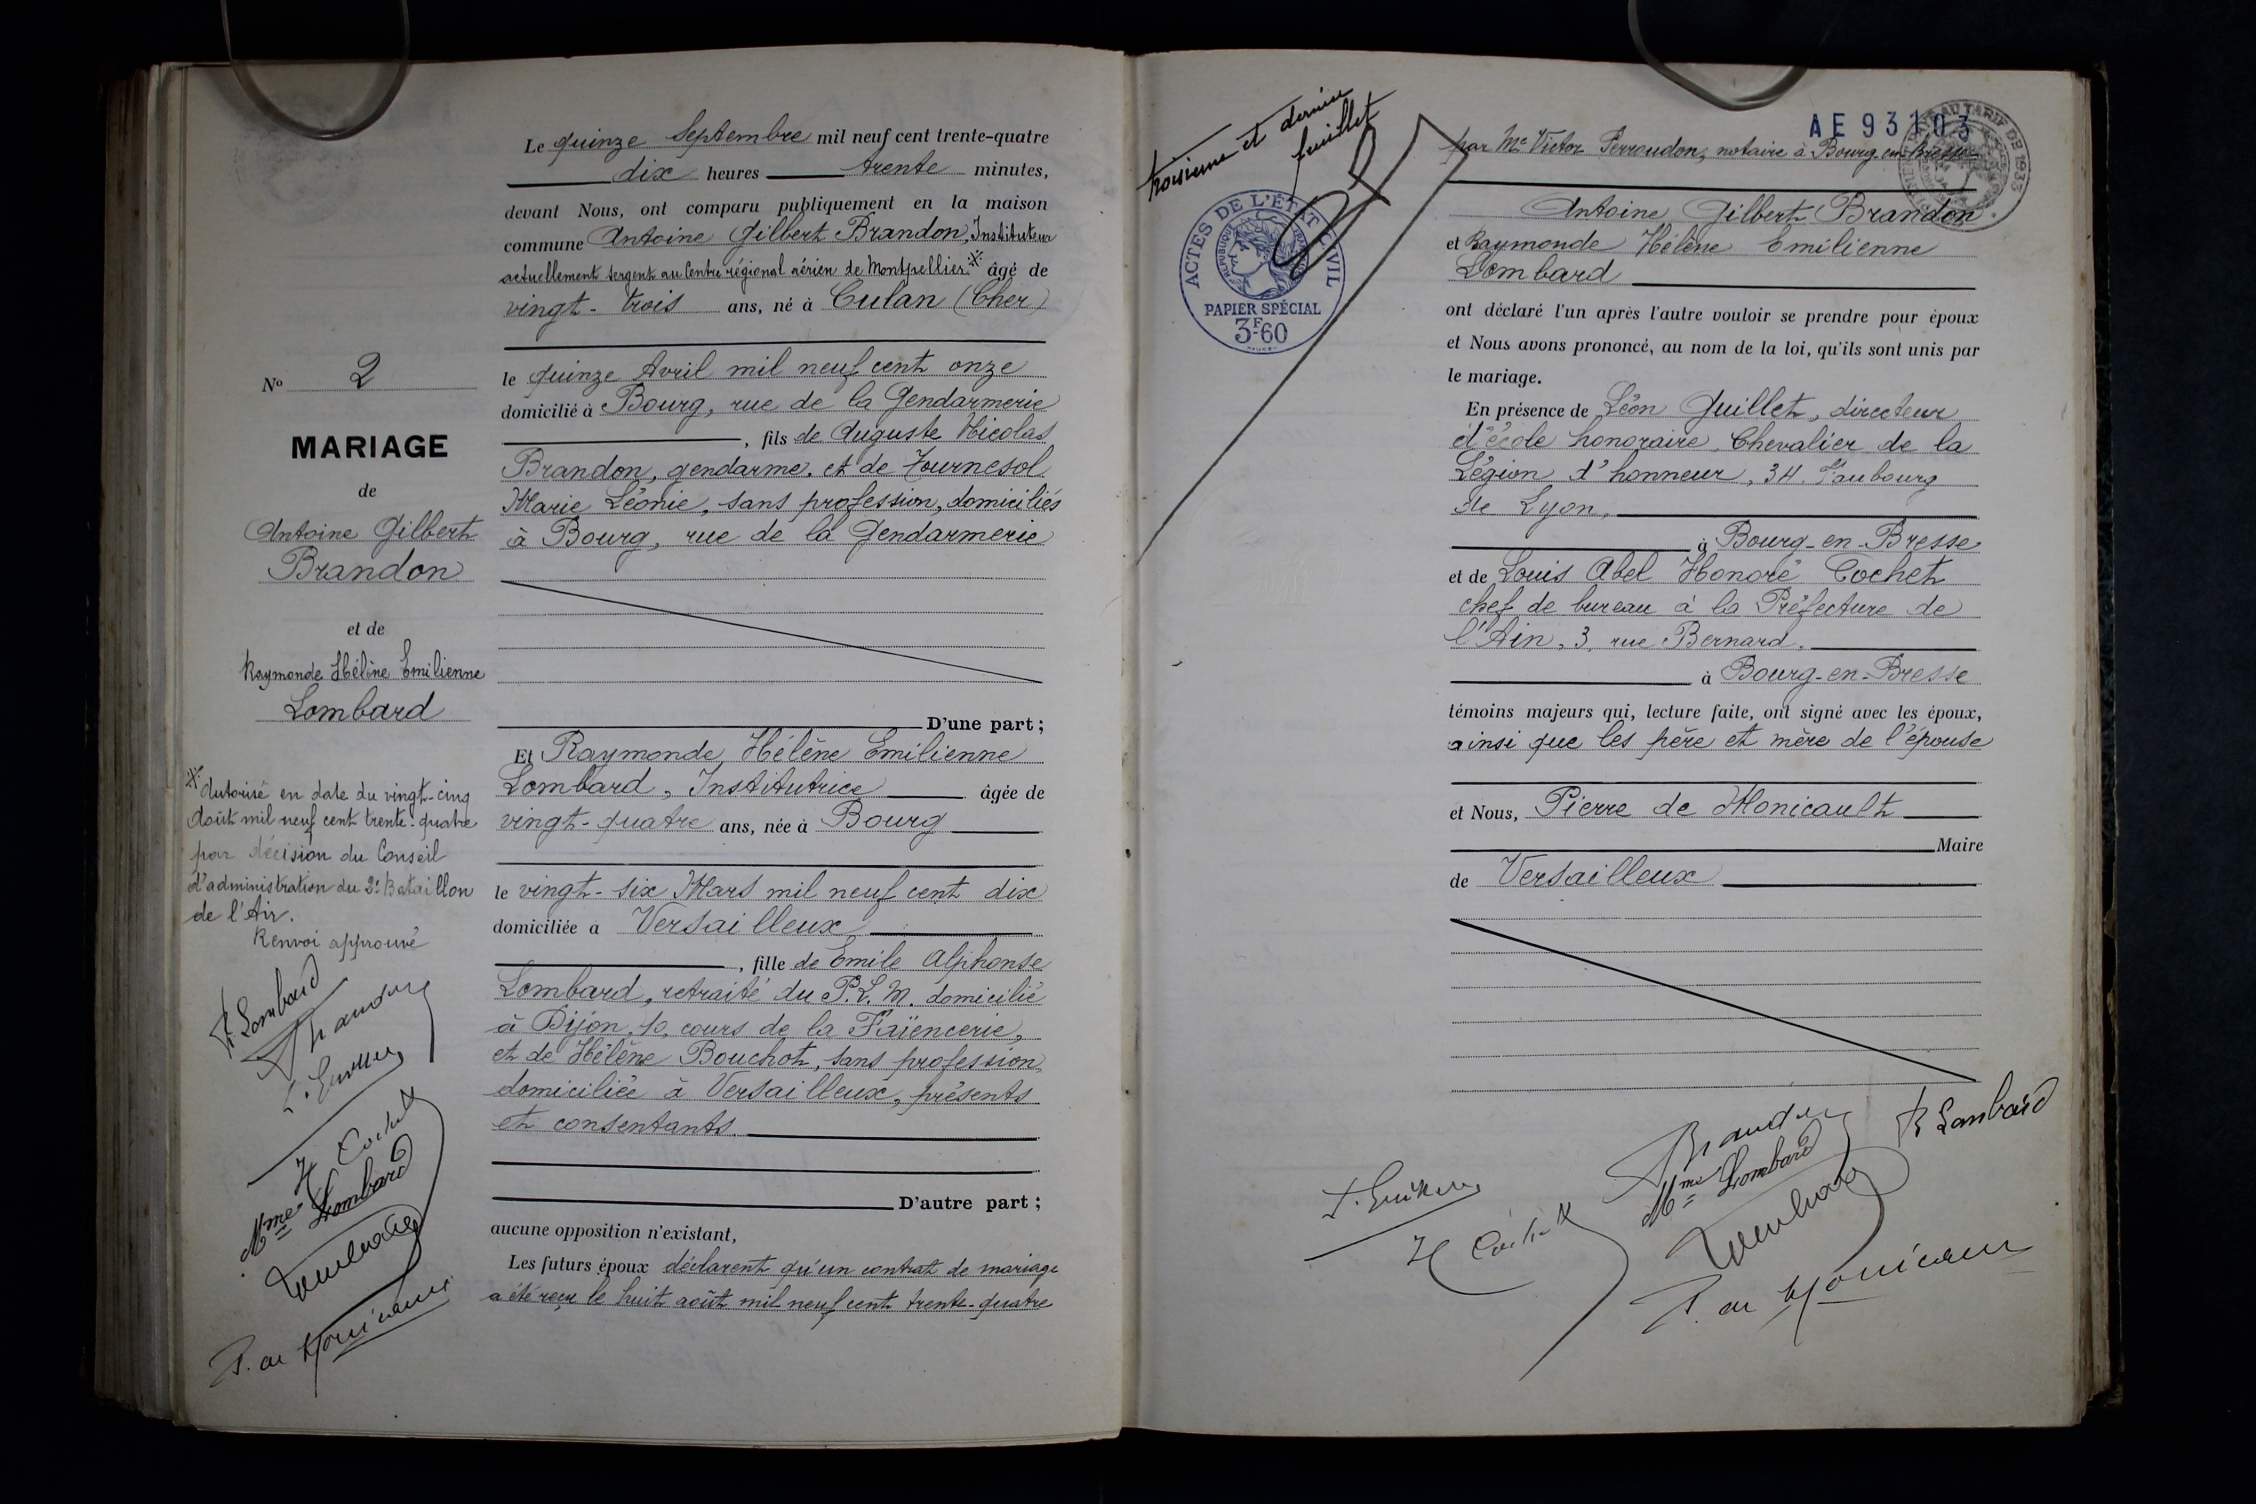 Le quinze Septembre mil neuf cent trente-quatre
dix heures trente minutes,
devant Nous, ont comparu publiquement en la maison
commune Antoine Gilbert Brandon, Instituteur
actuellement sergent au Centre régional aérien de Montpellier ※ âgé de
vingt-trois ans, né à Culan (Cher)
le quinze Avril mil neuf cent onze
domicilié à Bourg, rue de la Gendarmerie
, fils de Auguste Nicolas
Brandon, gendarme, et de Tournesol
Marie Léonie, sans profession, domiciliés
à Bourg, rue de la Gendarmerie
D'une part;
Et Raymonde Hélène Emilienne
Lombard, Institutrice âgée de
vingt-quatre ans, née à Bourg
le vingt-six Mars mil neuf cent dix
domiciliée à Versailleux
, fille de Emile Alphonse
Lombard, retraité du P.L.M. domicilié
à Dijon, 10, cours de la Faïencerie,
et de Hélène Bouchot, sans profession,
domiciliée à Versailleux, présents
et consentants.
D'autre part;
aucune opposition n'existant,
Les futurs époux déclarent qu'un contrat de mariage
a été reçu le huit août mil neuf cent trente-quatre
No 2
MARIAGE
de
Antoine Gilbert
Brandon
et de
Raymonde Hélène Emilienne
Lombard
※ Autorisé en date du vingt-cinq
Août mil neuf cent trente-quatre
par décision du Conseil
d'administration du 2e Bataillon
de l'Air.
Renvoi approuvé
R Lombard
Brandon
H Cochet
Mme Lombard
P. de Monicault
troisième et dernier
feuillet
ACTES DE L'ÉTAT CIVIL
PAPIER SPÉCIAL
3F.60
AE 93103
AU TARIF DE 1933
par Me Victor Perroudon, notaire à Bourg en Bresse
Antoine Gilbert Brandon
et Raymonde Hélène Emilienne
Lombard
ont déclaré l'un après l'autre vouloir se prendre pour époux
et Nous avons prononcé, au nom de la loi, qu'ils sont unis par
le mariage.
En présence de Léon Guillet, directeur
d'école honoraire, Chevalier de la
Légion d'honneur, 34, Faubourg
de Lyon,
à Bourg-en-Bresse
et de Louis Abel Honoré Cochet
chef de bureau à la Préfecture de
l'Ain, 3, rue Bernard.
à Bourg-en-Bresse
témoins majeurs qui, lecture faite, ont signé avec les époux,
ainsi que les père et mère de l'épouse
et Nous, Pierre de Monicault
Maire
de Versailleux
Brandon
R Lombard
Mme Lombard
H Cochet
P. de Monicault